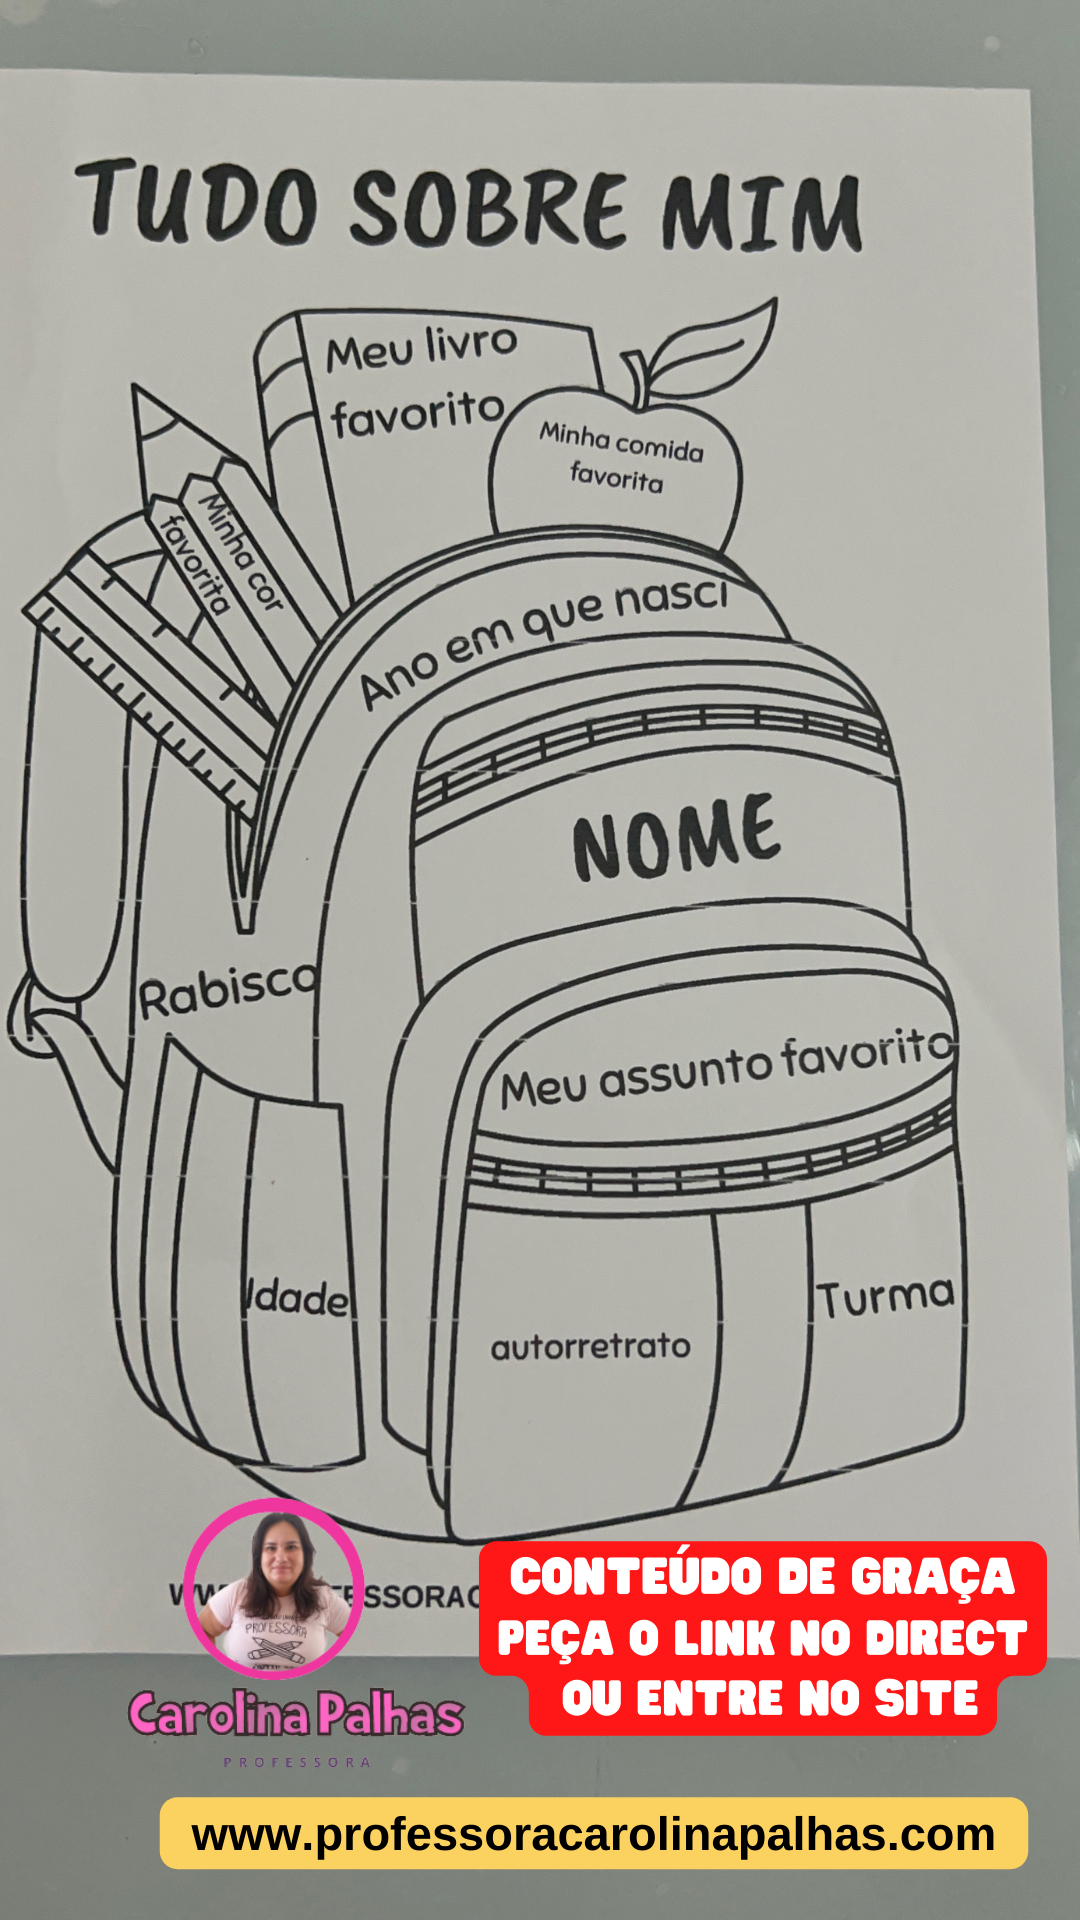 TUDO SOBRE MIM
Meu livro
favorito
Minha comida
favorita
Minha cor
favorita
Ano em que nasci
NOME
Rabisco
Meu assunto favorito
Idade
autorretrato
Turma
PROFESSORA
CONTEÚDO DE GRAÇA
PEÇA O LINK NO DIRECT
OU ENTRE NO SITE
Carolina Palhas
PROFESSORA
www.professoracarolinapalhas.com